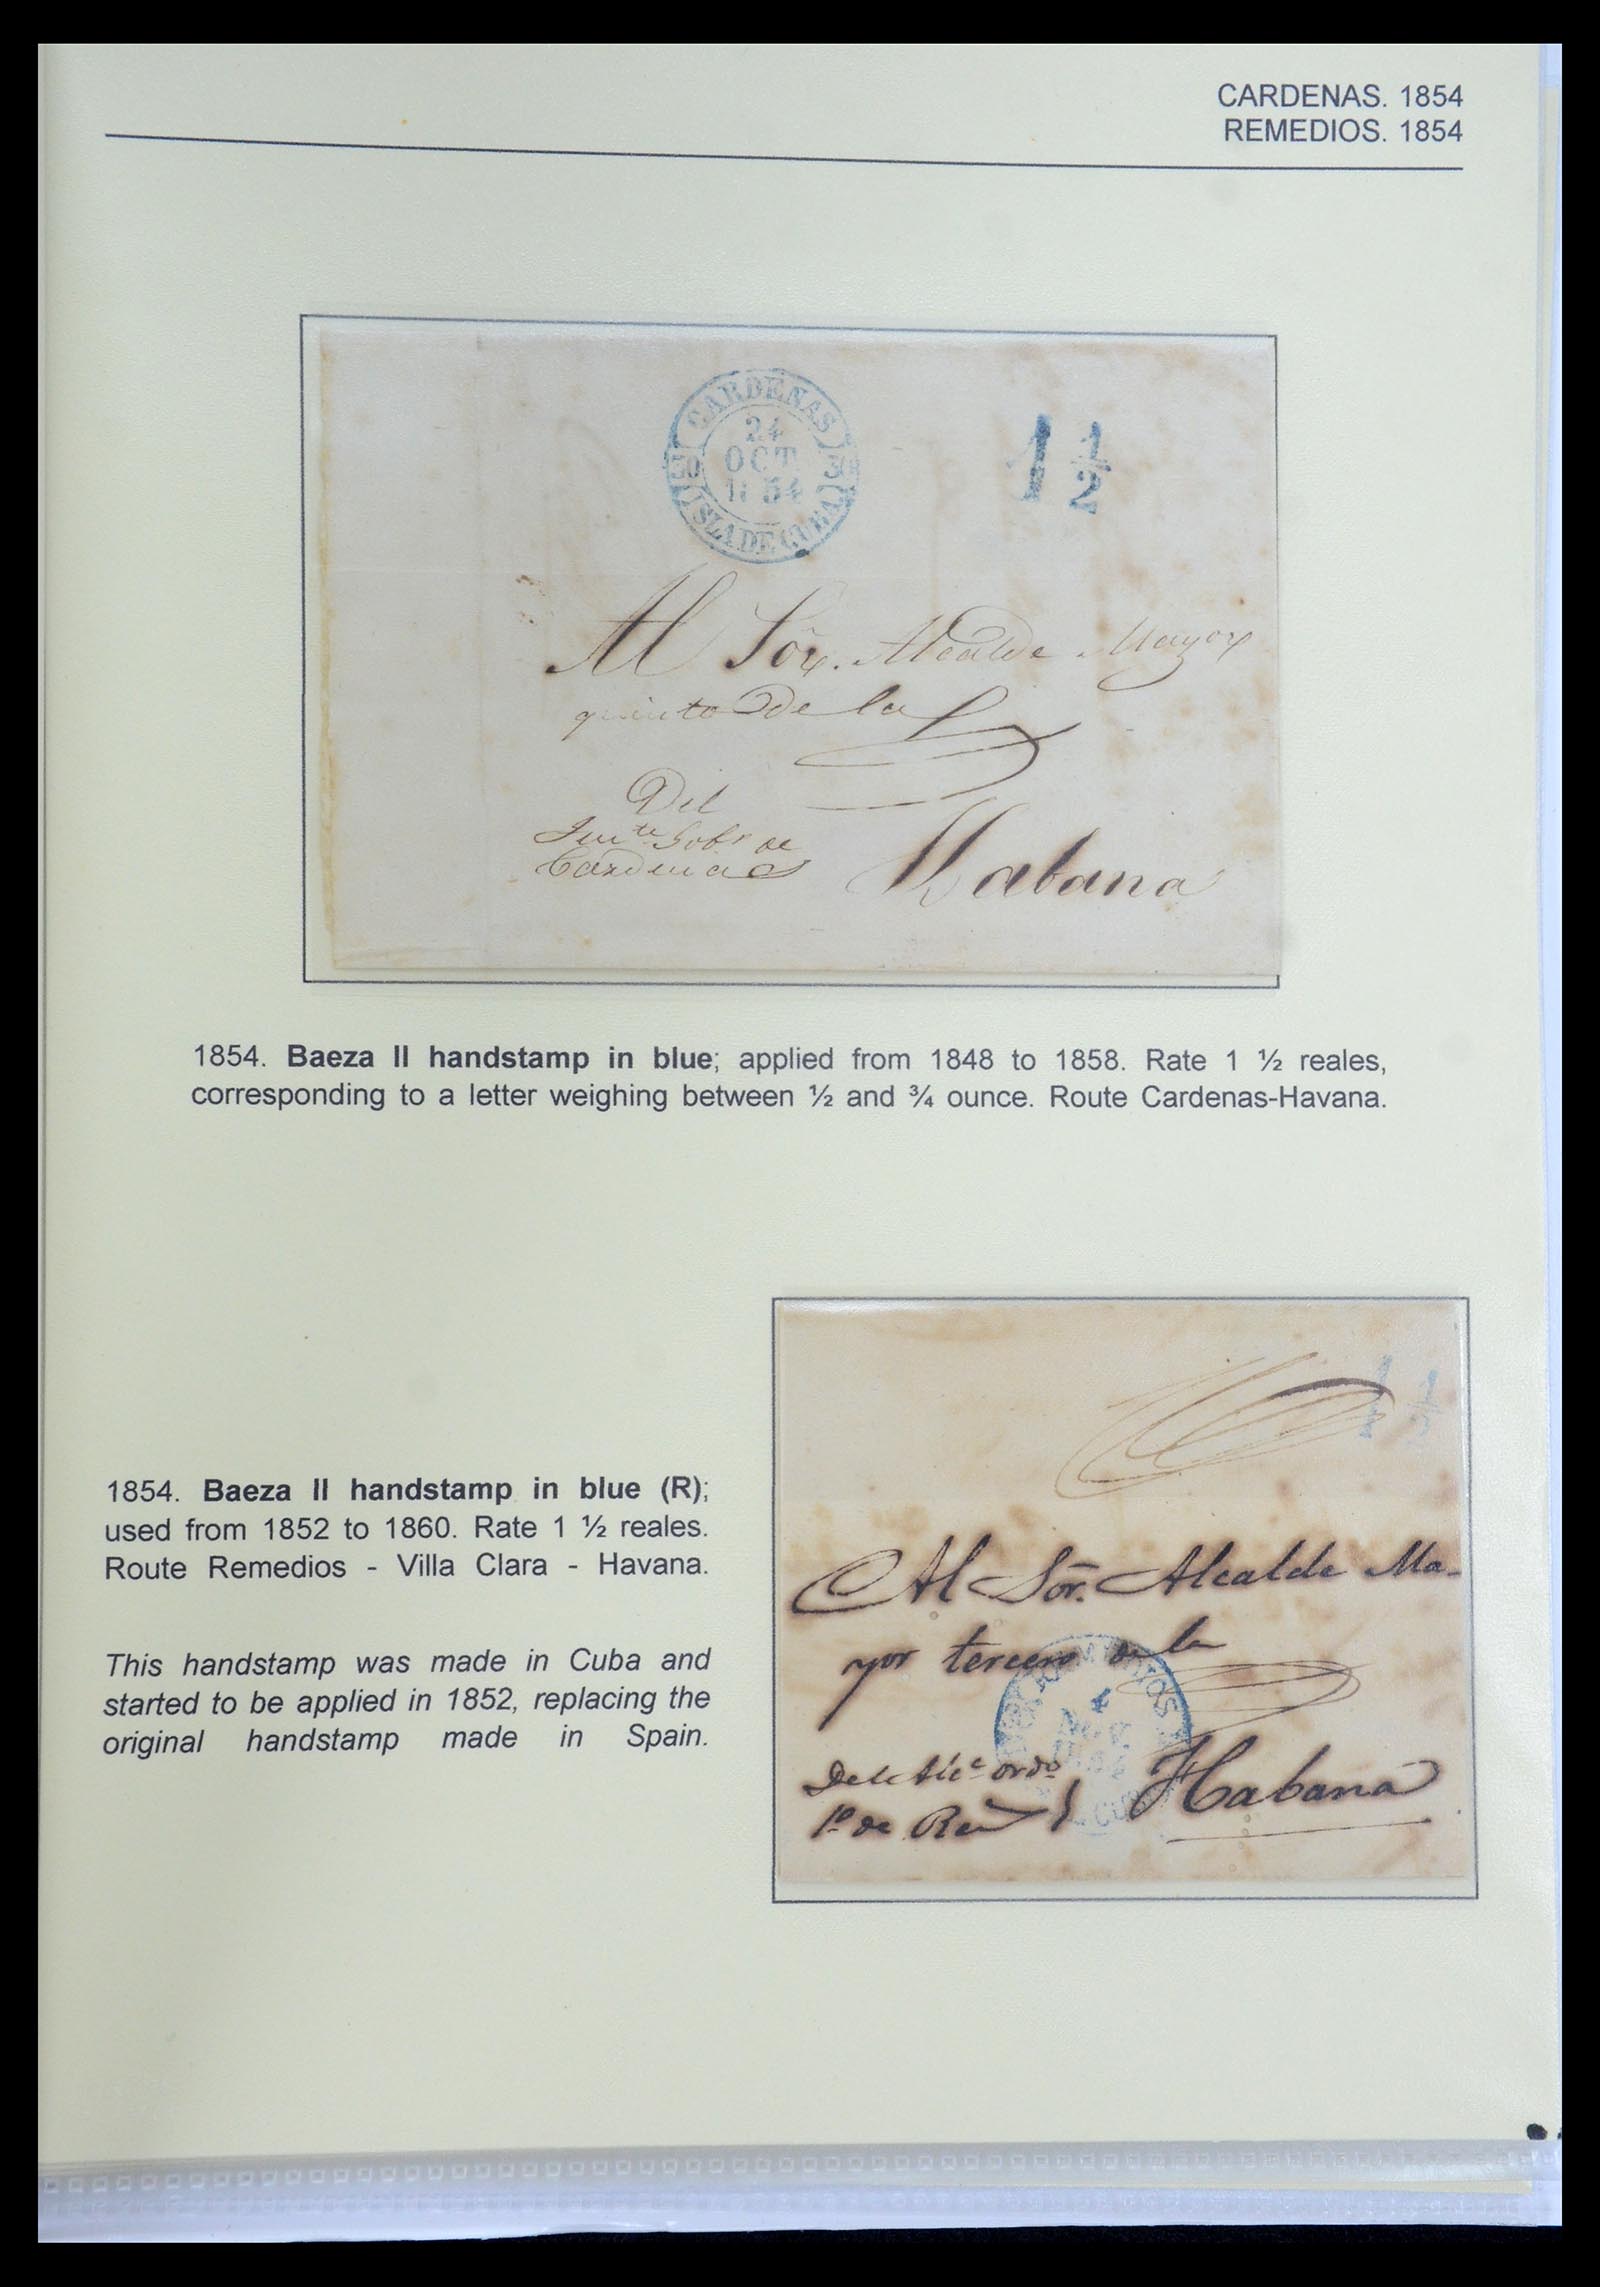 CARDENAS. 1854
REMEDIOS. 1854
CARDENAS
24
OCT
1854
30 30
ISLA DE CUBA
1 1/2
Al Sōr. Alcalde Mayor
quinto de la
Del
Ten.te Gob.r de
Cardenas
Habana
1854. Baeza II handstamp in blue; applied from 1848 to 1858. Rate 1 ½ reales,
corresponding to a letter weighing between ½ and ¾ ounce. Route Cardenas-Havana.
1854. Baeza II handstamp in blue (R);
used from 1852 to 1860. Rate 1 ½ reales.
Route Remedios - Villa Clara - Havana.
This handstamp was made in Cuba and
started to be applied in 1852, replacing the
original handstamp made in Spain.
Al Sōr. Alcalde Ma-
yor tercero de la
Habana
1º de